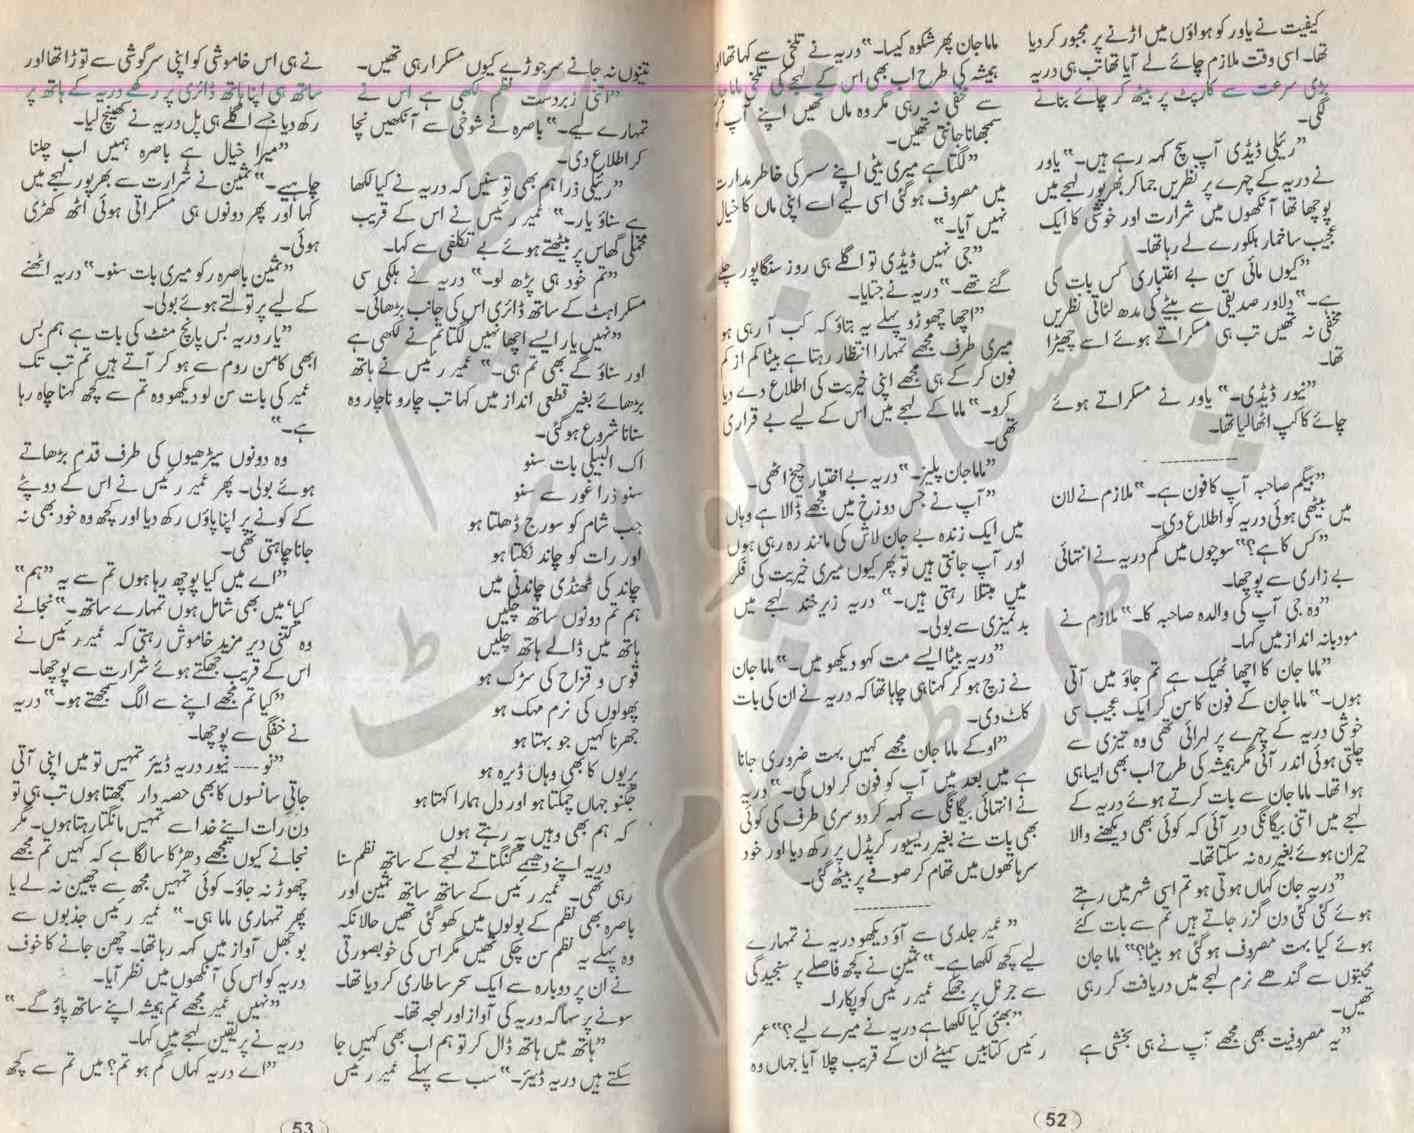 کیفیت نے یاور کو ہواؤں میں اڑنے پر مجبور کر دیا
تھا۔ اسی وقت ملازم چائے لے آیا تھا تب ہی دریہ
بڑی سرعت سے کارپٹ پر بیٹھ کر چائے بنانے
لگی۔
”رئیلی ڈیڈی آپ سچ کہہ رہے ہیں۔“ یاور
نے دریہ کے چہرے پر نظریں جما کر بھرپور لہجے میں
پوچھا تھا آنکھوں میں شرارت اور خوشی کا ایک
عجیب سا خمار ہلکورے لے رہا تھا۔
”کیوں مائی سن بے اعتباری کس بات کی
ہے۔“ دلاور صدیقی سے بیٹے کی مدھ لٹاتی نظریں
مخفی نہ تھیں تب ہی مسکراتے ہوئے اسے چھیڑا
تھا۔
”نیور ڈیڈی۔“ یاور نے مسکراتے ہوئے
چائے کا کپ اٹھا لیا تھا۔
----------
”بیگم صاحبہ آپ کا فون ہے۔“ ملازم نے لان
میں بیٹھی ہوئی دریہ کو اطلاع دی۔
”کس کا ہے؟“ سوچوں میں گم دریہ نے انتہائی
بے زاری سے پوچھا۔
”وہ جی آپ کی والدہ صاحبہ کا۔“ ملازم نے
مودبانہ انداز میں کہا۔
”ماما جان کا اچھا ٹھیک ہے تم جاؤ میں آتی
ہوں۔“ ماما جان کے فون کا سن کر ایک عجیب سی
خوشی دریہ کے چہرے پر لہرائی تھی وہ تیزی سے
چلتی ہوئی اندر آئی مگر ہمیشہ کی طرح اب بھی ایسا ہی
ہوا تھا۔ ماما جان سے بات کرتے ہوئے دریہ کے
لہجے میں اتنی بیگانگی در آئی کہ کوئی بھی دیکھنے والا
حیران ہوئے بغیر رہ نہ سکتا تھا۔
”دریہ جان کہاں ہوتی ہو تم اسی شہر میں رہتے
ہوئے کئی کئی دن گزر جاتے ہیں تم سے بات کئے
ہوئے کیا بہت مصروف ہو گئی ہو بیٹا؟“ ماما جان
محبتوں سے گندھے نرم لہجے میں دریافت کر رہی
تھیں۔
”یہ مصروفیت بھی مجھے آپ نے ہی بخشی ہے
ماما جان پھر شکوہ کیسا۔“ دریہ نے تلخی سے کہا تھا اور
ہمیشہ کی طرح اب بھی اس کے لہجے کی تلخی ماما جان
سے مخفی نہ رہی مگر وہ ماں تھیں اپنے آپ کو
سمجھانا جانتی تھیں۔
”لگتا ہے میری بیٹی اپنے سسر کی خاطر مدارت
میں مصروف ہو گئی اسی لیے اسے اپنی ماں کا خیال
نہیں آیا۔“
”جی نہیں ڈیڈی تو اگلے ہی روز سنگاپور چلے
گئے تھے۔“ دریہ نے جتایا۔
”اچھا چھوڑو پہلے یہ بتاؤ کہ کب آ رہی ہو
میری طرف مجھے تمہارا انتظار رہتا ہے بیٹا کم از کم
فون کر کے ہی مجھے اپنی خیریت کی اطلاع دے دیا
کرو۔“ ماما کے لہجے میں اس کے لیے بے قراری
تھی۔
”ماما جان پلیز۔“ دریہ بے اختیار چیخ اٹھی۔
”آپ نے جس دوزخ میں مجھے ڈالا ہے وہاں
میں ایک زندہ بے جان لاش کی مانند رہ رہی ہوں
اور آپ جانتی ہیں تو پھر کیوں میری خیریت کی فکر
میں مبتلا رہتی ہیں۔“ دریہ زہر خند لہجے میں
بدتمیزی سے بولی۔
”دریہ بیٹا ایسے مت کہو دیکھو میں۔“ ماما جان
نے زچ ہو کر کہنا ہی چاہا تھا کہ دریہ نے ان کی بات
کاٹ دی۔
”اوکے ماما جان مجھے کہیں بہت ضروری جانا
ہے میں بعد میں آپ کو فون کر لوں گی۔“ دریہ
نے انتہائی بیگانگی سے کہہ کر دوسری طرف کی کوئی
بھی بات سنے بغیر ریسیور کریڈل پر رکھ دیا اور خود
سر ہاتھوں میں تھام کر صوفے پر بیٹھ گئی۔
----------
”عمیر جلدی سے آؤ دیکھو دریہ نے تمہارے
لیے کچھ لکھا ہے۔“ ثمین نے کچھ فاصلے پر سنجیدگی
سے جرنل پر جھکے عمیر رئیس کو پکارا۔
”بھئی کیا لکھا ہے دریہ نے میرے لیے؟“ عمر
رئیس کتابیں سمیٹے ان کے قریب چلا آیا جہاں وہ
(52)
تینوں نہ جانے سر جوڑے کیوں مسکرا رہی تھیں۔
”اتنی زبردست نظم لکھی ہے اس نے
تمہارے لیے۔“ باصرہ نے شوخی سے آنکھیں نچا
کر اطلاع دی۔
”رئیلی ذرا ہم بھی تو سنیں کہ دریہ نے کیا لکھا
ہے سناؤ یار۔“ عمیر رئیس نے اس کے قریب
مخملی گھاس پر بیٹھتے ہوئے بے تکلفی سے کہا۔
”تم خود ہی پڑھ لو۔“ دریہ نے ہلکی سی
مسکراہٹ کے ساتھ ڈائری اس کی جانب بڑھائی۔
”نہیں یار ایسے اچھا نہیں لگتا تم نے لکھی ہے
اور سناؤ گے بھی تم ہی۔“ عمیر رئیس نے ہاتھ
بڑھائے بغیر قطعی انداز میں کہا تب چار و ناچار وہ
سنانا شروع ہو گئی۔
اک البیلی بات سنو
سنو ذرا غور سے سنو
جب شام کو سورج ڈھلتا ہو
اور رات کو چاند نکلتا ہو
چاند کی ٹھنڈی چاندنی میں
ہم تم دونوں ساتھ چلیں
ہاتھ میں ڈالے ہاتھ چلیں
قوس و قزاح کی سڑک ہو
پھولوں کی نرم مہک ہو
جھرنا کہیں جو بہتا ہو
پریوں کا بھی وہاں ڈیرہ ہو
جگنو جہاں چمکتا ہو اور دل ہمارا کہتا ہو
کہ ہم بھی وہیں پہ رہتے ہوں
دریہ اپنے دھیمے گنگناتے لہجے کے ساتھ نظم سنا
رہی تھی۔ عمیر رئیس کے ساتھ ساتھ ثمین اور
باصرہ بھی نظم کے بولوں میں کھو گئی تھیں حالانکہ
وہ پہلے یہ نظم سن چکی تھیں مگر اس کی خوبصورتی
نے ان پر دوبارہ سے ایک سحر سا طاری کر دیا تھا۔
سونے پر سہاگہ دریہ کی آواز اور لہجہ تھا۔
”ہاتھ میں ہاتھ ڈال کر تو ہم اب بھی کہیں جا
سکتے ہیں دریہ ڈیئر۔“ سب سے پہلے عمیر رئیس
نے ہی اس خاموشی کو اپنی سرگوشی سے توڑا تھا اور
ساتھ ہی اپنا ہاتھ ڈائری پر رکھے دریہ کے ہاتھ پر
رکھ دیا جسے اگلے ہی پل دریہ نے کھینچ لیا۔
”میرا خیال ہے باصرہ ہمیں اب چلنا
چاہیے۔“ ثمین نے شرارت سے بھرپور لہجے میں
کہا اور پھر دونوں ہی مسکراتی ہوئی اٹھ کھڑی
ہوئی۔
”ثمین باصرہ رکو میری بات سنو۔“ دریہ اٹھنے
کے لیے پر تولتے ہوئے بولی۔
”یار دریہ بس پانچ منٹ کی بات ہے ہم بس
ابھی کامن روم سے ہو کر آتے ہیں تم تب تک
عمیر کی بات سن لو دیکھو وہ تم سے کچھ کہنا چاہ رہا
ہے۔“
وہ دونوں سیڑھیوں کی طرف قدم بڑھاتے
ہوئے بولی۔ پھر عمیر رئیس نے اس کے دوپٹے
کے کونے پر اپنا پاؤں رکھ دیا اور کچھ وہ خود بھی نہ
جانا چاہتی تھی۔
”اے میں کیا پوچھ رہا ہوں تم سے یہ ”ہم“
کیا‘ میں بھی شامل ہوں تمہارے ساتھ۔“ نجانے
وہ کتنی دیر مزید خاموش رہتی کہ عمیر رئیس نے
اس کے قریب جھکتے ہوئے شرارت سے پوچھا۔
”کیا تم مجھے اپنے سے الگ سمجھتے ہو۔“ دریہ
نے خفگی سے پوچھا۔
”نو---- نیور دریہ ڈیئر تمہیں تو میں اپنی آتی
جاتی سانسوں کا بھی حصہ دار سمجھتا ہوں تب ہی تو
دن رات اپنے خدا سے تمہیں مانگتا رہتا ہوں۔ مگر
نجانے کیوں مجھے دھڑکا سا لگا ہے کہ کہیں تم مجھے
چھوڑ نہ جاؤ۔ کوئی تمہیں مجھ سے چھین نہ لے یا
پھر تمہاری ماما ہی۔“ عمیر رئیس جذبوں سے
بوجھل آواز میں کہہ رہا تھا۔ چھن جانے کا خوف
دریہ کو اس کی آنکھوں میں نظر آیا۔
”نہیں عمیر مجھے تم ہمیشہ اپنے ساتھ پاؤ گے۔“
دریہ نے پر یقین لہجے میں کہا۔
”اے دریہ کہاں گم ہو تم؟ میں تم سے کچھ
(53)